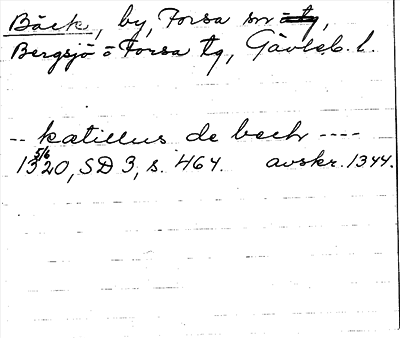 Bäck, by, Forsa sn,
Bergsjö o Forsa tg, Gävleb. l.
-- katillus de bech ----
1320, 5/6 SD 3, s. 464. avskr. 1344.